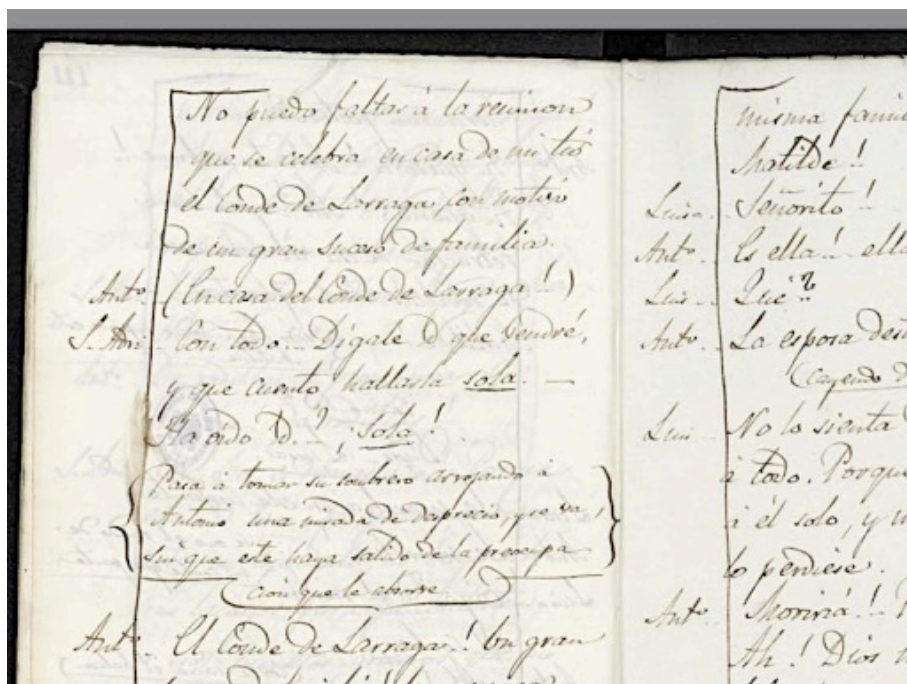 No puedo faltar á la reunion
que se celebra en casa de mi tio
el Conde de Larraga con motivo
de un gran suceso de familia.
Ant.º (En casa del Conde de Larraga!)
S. Adri Con todo... Digale V. que vendré,
y que cuento hallarla sola. —
Ha oido V.? ¡Sola!
Pasa á tomar su sombrero arrojando á
Antonio una mirada de desprecio, y se va,
sin que este haya salido de la preocupa
cion que le absorve
Ant.º El Conde de Larraga!! Un gran
misma fami
Matilde!
Luisa Señorito!
Ant.º Es ella! ella
Luis Qué?
Ant.º La esposa
(cayendo
Luis No lo sienta
á todo. Porque
á él solo, y
lo perdiese.
Ant.º Moriria!!
Ah! Dios